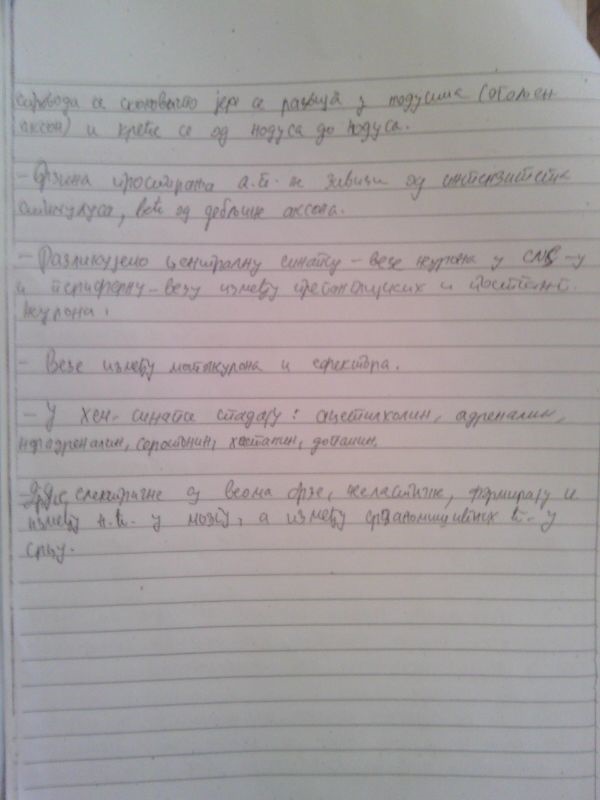 спроводи се скоковито јер се развија у нодусима (оголоен
аксон) и креће се од нодуса до нодуса.
- Брзина простирања а.п. не зависи од интензитета
стимулуса, већ од дебљине аксона.
- Разликујемо централну синапсу - везе неурона у СМЅ-у
и периферну - везу између преганглијских и постганг.
неурона.
- Везе између мотонеурона и ефектора.
- У хем. синапсе спадају: ацетилхолин, адреналин,
норадреналин, серотонин, хистамин, допамин.
електричне су веома брзе, нееластичне, формирају и
између н.ћ. у мозгу, а између срчаномишићних ћ. у
срцу.